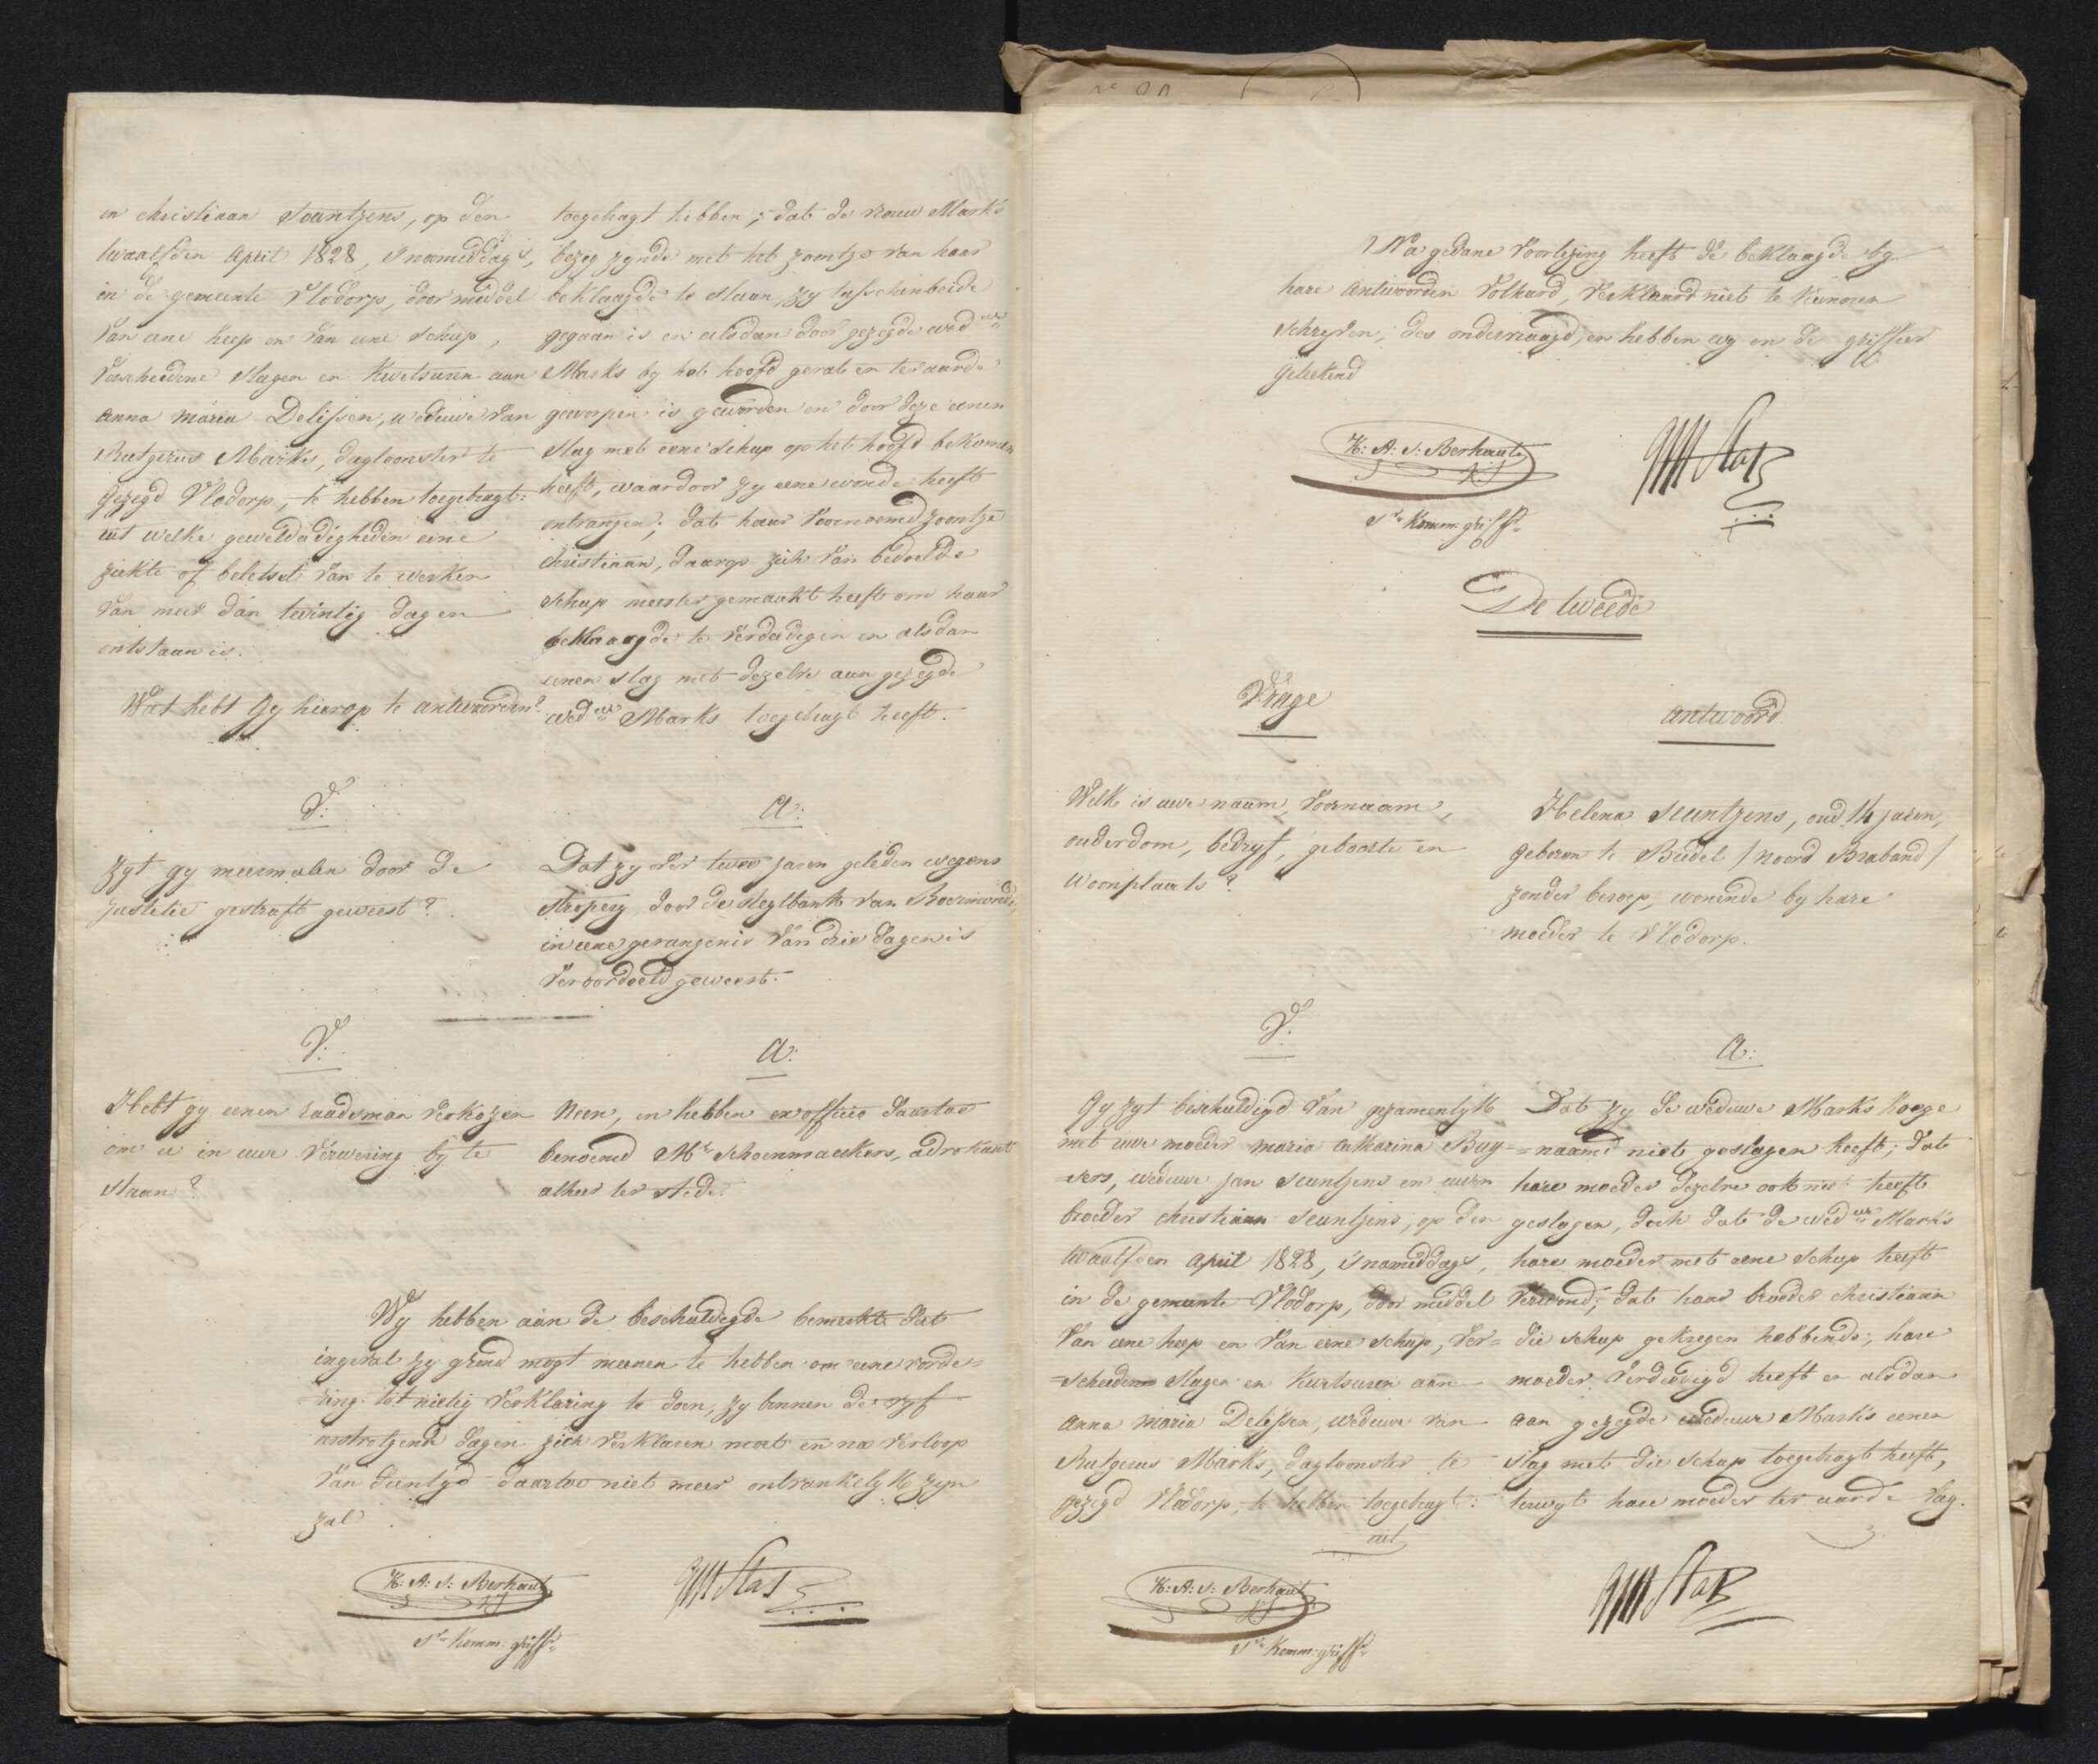 en christiaan Seuntjens, op den
twaalfden April 1828, s'namiddags,
in de gemeente Vlodorp, door middel
van eene heep en van eene schup,
verscheidene slagen en kwetsuren aan
anna maria Delissen, weduwe van
Rutgerus Marks, dagloonster te
gezegd Vlodorp, te hebben toegebragt:
uit welke gewelddadigheden eene
ziekte of beletsel van te werken
van meer dan twintig dagen
ontstaan is.
Wat hebt gy hierop te antwoorden?
toegebragt hebben; dat de vrouw Marks
bezig zynde met het zoontje van haar
beklaagde te slaan, zy tusschenbeide
gegaan is en alsdan door gezegde wed.we
Marks by het hoofd gevat en ter aarde
geworpen is geworden en door deze eenen
slag met eene schup op het hoofd bekomen
heeft, waardoor zy eene wonde heeft
ontvangen; dat haar voornoemd zoontje
christiaan, daarop zich van bedoelde
schup meester gemaakt heeft om haar
beklaagde te verdedigen en alsdan
eenen slag met dezelve aan gezegde
wed.we Marks toegebragt heeft.
V:
zyt gy meermalen door de
justitie gestraft geweest?
A:
Dat zy over twee jaren geleden wegens
stropery door de Regtbank van Roermonde,
in eene gevangenis van drie dagen is
veroordeeld geweest.
V:
Hebt gy eenen raadsman verkozen
om u in uwe verwering by te
staan?
A:
Neen, en hebben ex officio daartoe
benoemd Mr Schoenmaekers, advokaat
alhier ter stede.
Wy hebben aan de beschuldigde bemerkt dat
ingeval zy grond mogt meenen te hebben om eene vorde=
=ring tot nietig verklaring te doen, zy binnen de vyf
eerstvolgende dagen zich verklaren moet en na verloop
van dien tyd daartoe niet meer ontvankelyk zyn
zal.
K: A: J: Berhaut
Sr Komm: griffr
Stas
Na gedane voorlezing heeft de beklaagde by
hare antwoorden volhard, verklaard niet te kunnen
schryven, des ondervraagd, en hebben wy en de griffier
geteekend
K: A: J: Berhaut
Sr Komm: griffr
Stas
De tweede
Vrage
antwoord
Welk is uwe naam, voornaam,
ouderdom, bedryf, geboorte en
woonplaats?
Helena Seuntjens, oud 14 jaren,
geboren te Budel / noord Braband /
zonder beroep, wonende by hare
moeder te Vlodorp.
V.
A:
Gy zyt beschuldigd van gezamentlyk
met uwe moeder maria catharina Buy=
=sers, weduwe jan Seuntjens en uwen
broeder christiaan Seuntjens, op den
twaalfden april 1828, s'namiddags,
in de gemeente Vlodorp, door middel
van eene heep en van eene schup, ver=
=scheidene slagen en kwetsuren aan
anna maria Delissen, weduwe van
Rutgerus Marks, dagloonster te
gezegd Vlodorp, te hebben toegebragt:
uit
Dat zy de weduwe Marks hooge
=naamd niet geslagen heeft; dat
hare moeder dezelve ook niet heeft
geslagen, doch dat de wed.we Marks
hare moeder met eene schup heeft
verwond; dat haar broeder christiaan
die schup gekregen hebbende, hare
moeder verdedigd heeft en alsdan
aan gezegde weduwe Marks eenen
slag met die schup toegebragt heeft,
terwyl hare moeder ter aarde lag.
K: A: J: Berhaut
Sr Komm: griffr
Stas